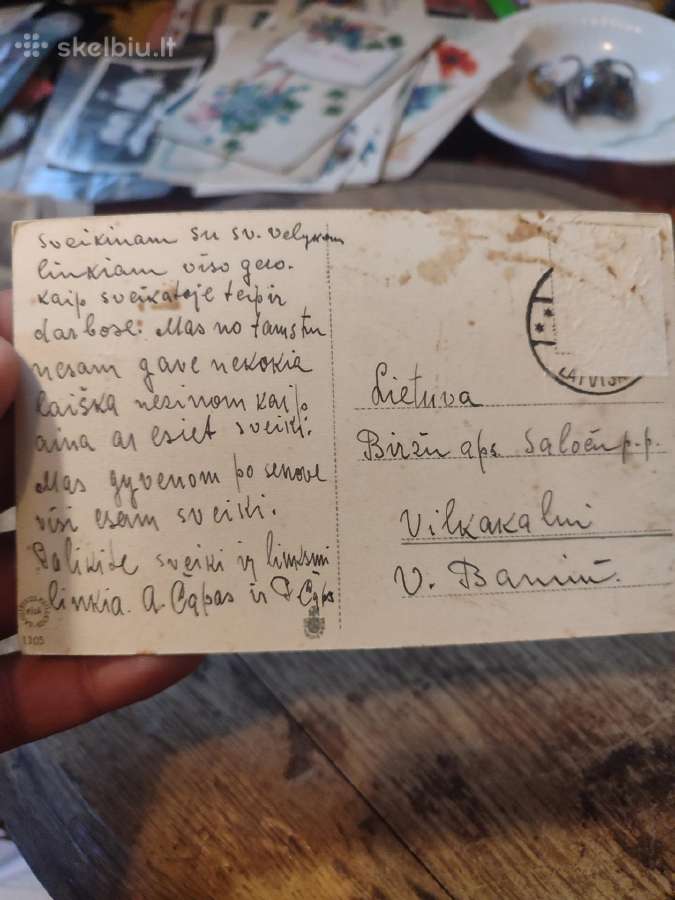 skelbiu.lt
sveikinam su sv. velykom
linkiam viso gero.
kaip sveikatoje teip ir
darbose. Mas no tamstu
nesam gave nekokia
laiška nezinom kaip
aina ar esiet sveiki.
Mas gyvenom po senove
visi esam sveiki.
Palikite sveiki ir linksmi
linkia. A. Čapas ir P Čaps
1305
LATVIJA
Lietuva
Biržu aps. Saločiu p.p.
Vilkakalni
V.